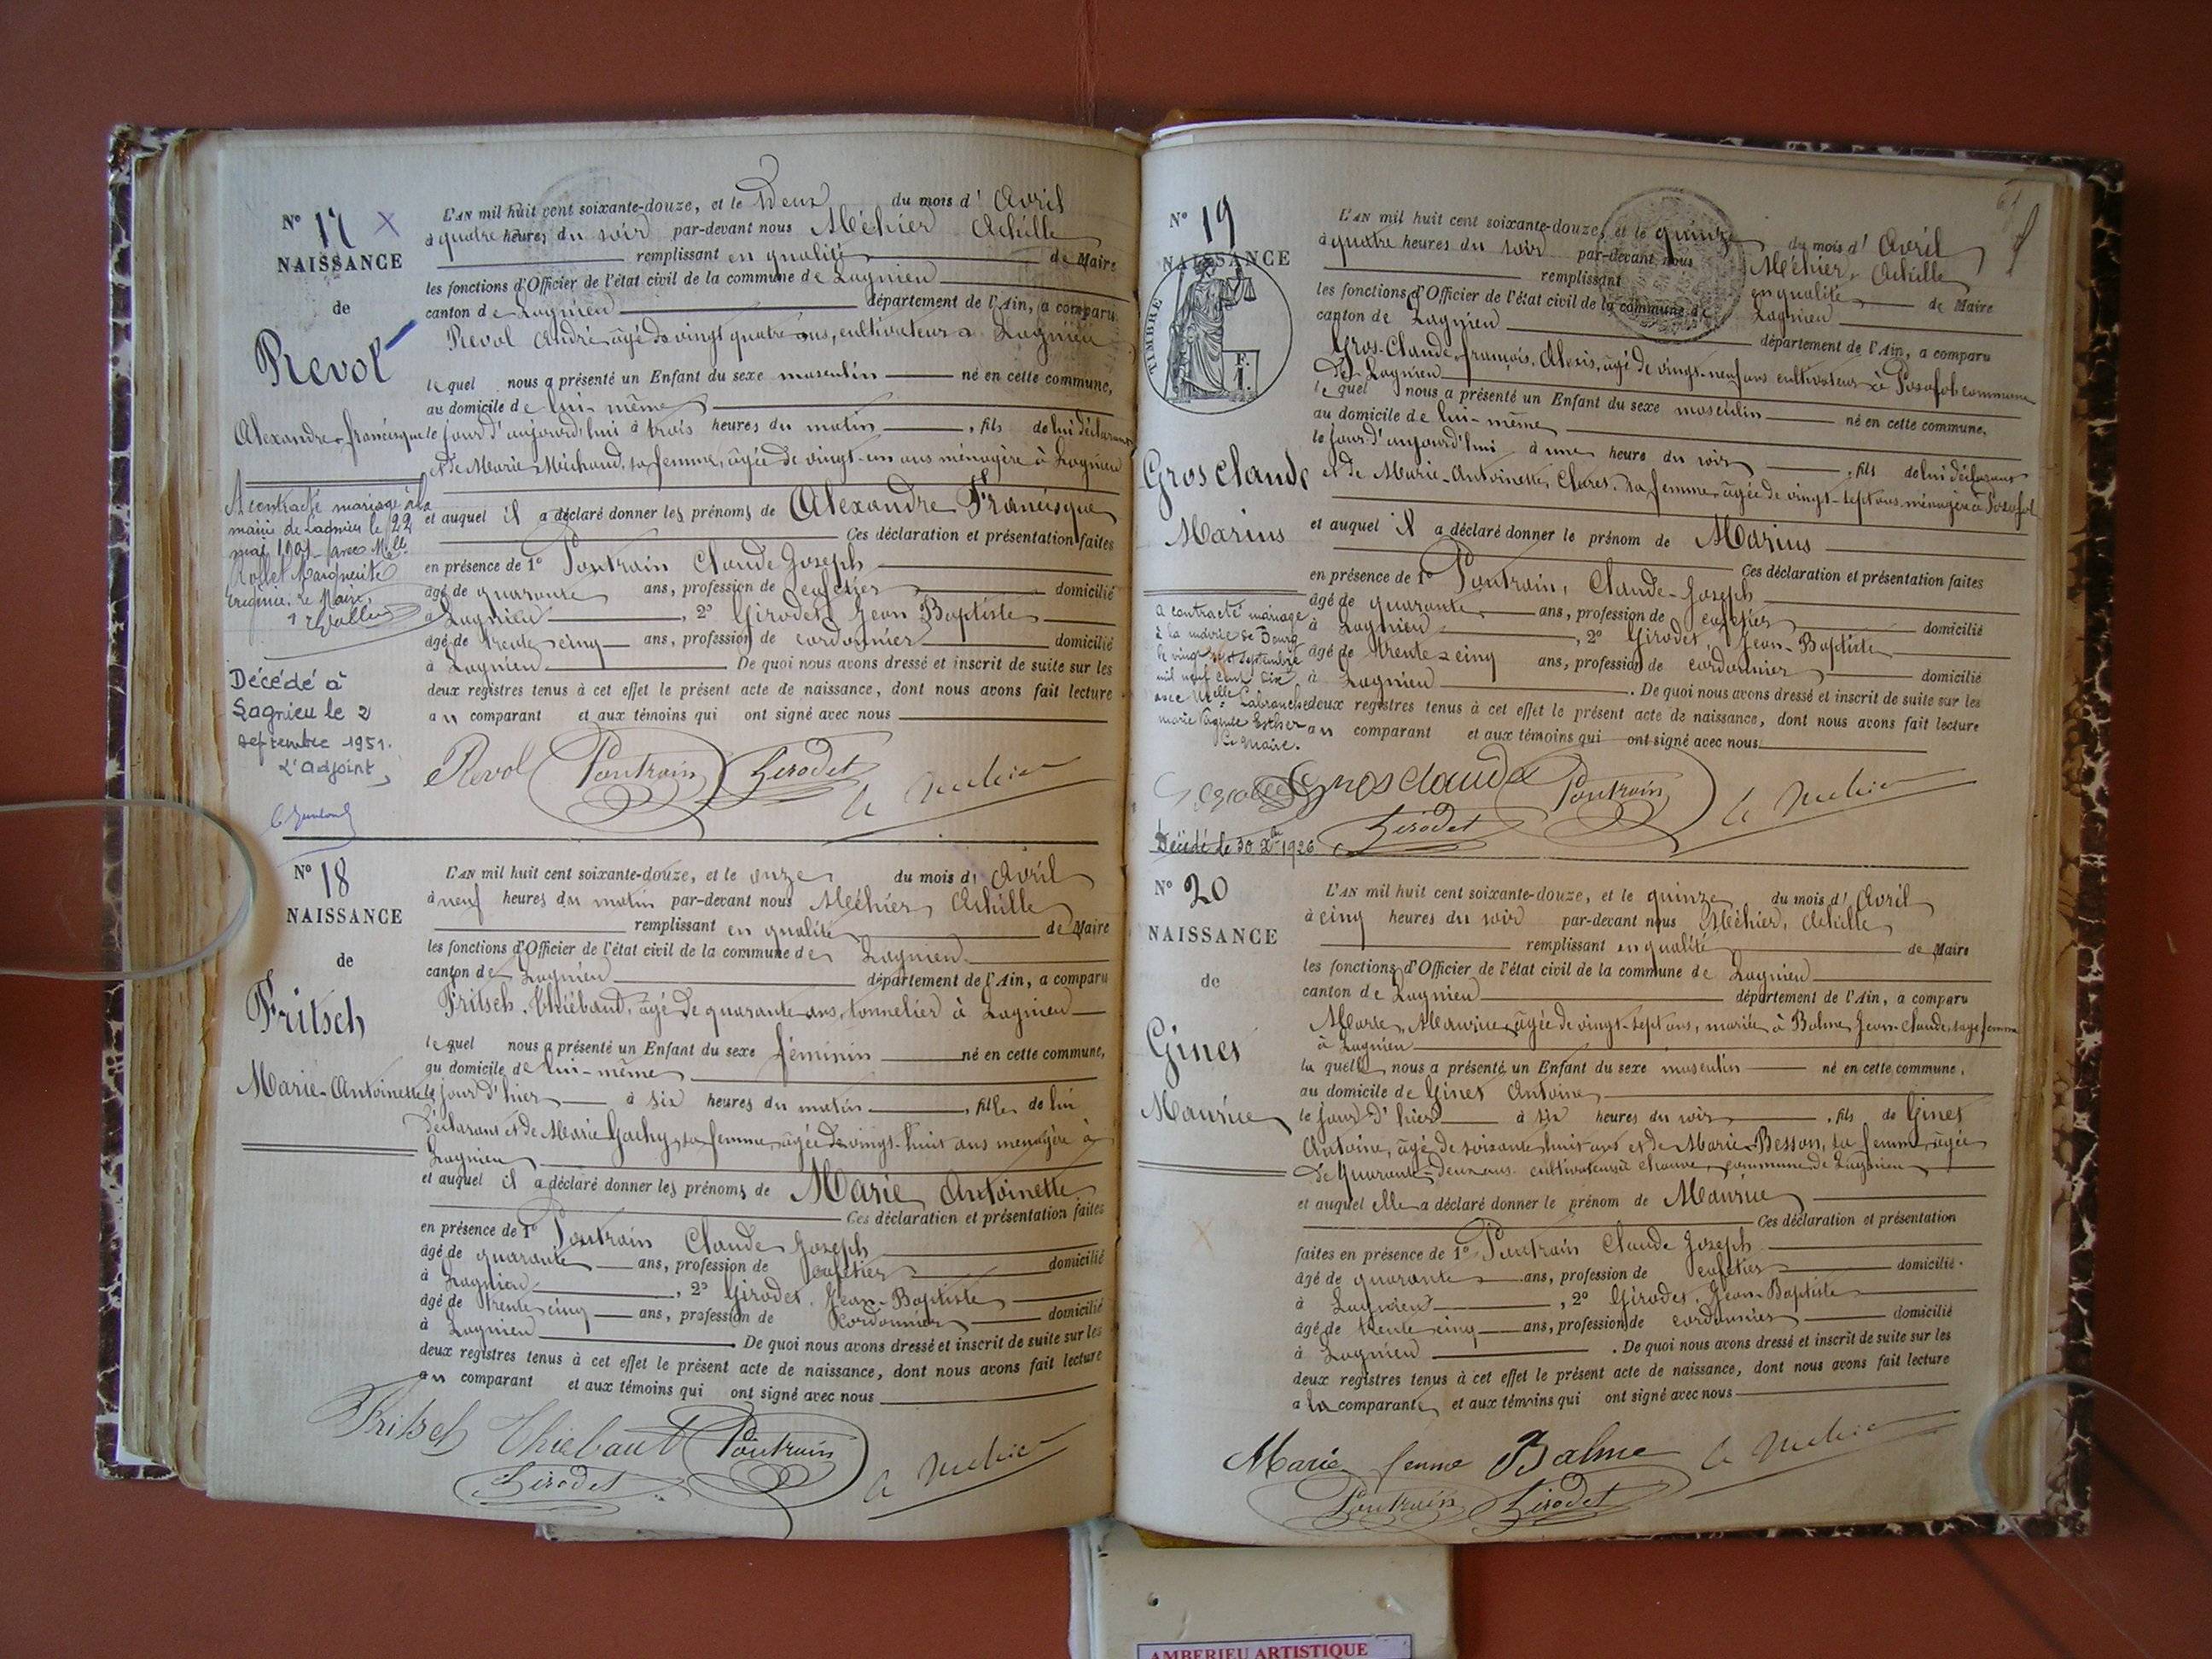 N° 17 X
NAISSANCE
de
Revol
Alexandre francisque
A contracté mariage à la
mairie de Lagnieu le 22
mai 1901 avec Mlle
Rollet Marguerite
Le Maire,
Décédé à
Lagnieu le 2
septembre 1951.
L'adjoint,
L'AN mil huit cent soixante-douze, et le deux du mois d' Avril
à quatre heures du soir par-devant nous Méhier Achille
remplissant en qualité de Maire
les fonctions d'Officier de l'état civil de la commune de Lagnieu
canton de Lagnieu département de l'Ain, a comparu
Revol André âgé de vingt quatre ans, cultivateur à Lagnieu
lequel nous a présenté un Enfant du sexe masculin né en cette commune,
au domicile de lui-même
le jour d'aujourd'hui à trois heures du matin, fils de lui déclarant
et de Marie Michaud, sa femme, âgée de vingt-un ans ménagère à Lagnieu
et auquel il a déclaré donner les prénoms de Alexandre Francisque
Ces déclaration et présentation faites
en présence de 1° Pontrain Claude Joseph
âgé de quarante ans, profession de cafetier domicilié
à Lagnieu, 2° Girodet Jean Baptiste
âgé de trente cinq ans, profession de cordonnier domicilié
à Lagnieu De quoi nous avons dressé et inscrit de suite sur les
deux registres tenus à cet effet le présent acte de naissance, dont nous avons fait lecture
au comparant et aux témoins qui ont signé avec nous
Revol Pontrain Girodet A Méhier
N° 18
NAISSANCE
de
Fritsch
Marie-Antoinette
L'AN mil huit cent soixante-douze, et le onze du mois d' Avril
à neuf heures du matin par-devant nous Méhier, Achille
remplissant en qualité de Maire
les fonctions d'Officier de l'état civil de la commune de Lagnieu
canton de Lagnieu département de l'Ain, a comparu
Fritsch, Thiébaud, âgé de quarante ans, tonnelier à Lagnieu
lequel nous a présenté un Enfant du sexe féminin né en cette commune,
au domicile de lui-même
le jour d'hier à six heures du matin, fille de lui
déclarant et de Marie Gachy, sa femme, âgée de vingt-huit ans ménagère à
Lagnieu
et auquel il a déclaré donner les prénoms de Marie Antoinette
Ces déclaration et présentation faites
en présence de 1° Pontrain Claude Joseph
âgé de quarante ans, profession de cafetier domicilié
à Lagnieu, 2° Girodet, Jean-Baptiste
âgé de trente cinq ans, profession de cordonnier domicilié
à Lagnieu. De quoi nous avons dressé et inscrit de suite sur les
deux registres tenus à cet effet le présent acte de naissance, dont nous avons fait lecture
au comparant et aux témoins qui ont signé avec nous
Fritsch Thiebaut Pontrain
Girodet A Méhier
N° 19
NAISSANCE
TIMBRE
F. 1.
Grosclaude
Marius
a contracté mariage
à la mairie de Bourg
le vingt sept septembre
mil neuf cent dix
avec Melle Labranche
marie Esther
Le Maire.
Décédé le 30 Xbre 1926
L'AN mil huit cent soixante-douze, et le quinze du mois d' Avril
à quatre heures du soir par-devant nous Méhier, Achille
remplissant en qualité de Maire
les fonctions d'Officier de l'état civil de la commune de Lagnieu
canton de Lagnieu département de l'Ain, a comparu
Gros-Claude, françois, Alexis, âgé de vingt-neuf ans cultivateur à Posafol commune
de Lagnieu
lequel nous a présenté un Enfant du sexe masculin né en cette commune,
au domicile de lui-même
le jour d'aujourd'hui à une heure du soir, fils de lui déclarant
et de Marie-Antoinette, Clares, sa femme, âgée de vingt-sept ans, ménagère à Posafol
et auquel il a déclaré donner le prénom de Marius
Ces déclaration et présentation faites
en présence de 1° Pontrain, Claude-Joseph
âgé de quarante ans, profession de cafetier domicilié
à Lagnieu, 2° Girodet, Jean-Baptiste
âgé de trente-cinq ans, profession de cordonnier domicilié
à Lagnieu. De quoi nous avons dressé et inscrit de suite sur les
deux registres tenus à cet effet le présent acte de naissance, dont nous avons fait lecture
au comparant et aux témoins qui ont signé avec nous.
Grosclaude Pontrain A Méhier
Girodet
N° 20
NAISSANCE
de
Gines
Maurice
L'AN mil huit cent soixante-douze, et le quinze du mois d' Avril
à cinq heures du soir par-devant nous Méhier, Achille
remplissant en qualité de Maire
les fonctions d'Officier de l'état civil de la commune de Lagnieu
canton de Lagnieu département de l'Ain, a comparu
Marie, Maurice, âgée de vingt-sept ans, mariée à Balme Jean-Claude, sage femme
à Lagnieu
laquelle nous a présenté un Enfant du sexe masculin né en cette commune,
au domicile de Gines Antoine
le jour d'hier à six heures du soir, fils de Gines
Antoine, âgé de soixante huit ans et de Marie-Besson, sa femme, âgée
de quarante-deux ans cultivateurs à commune de Lagnieu
et auquel elle a déclaré donner le prénom de Maurice
Ces déclaration et présentation
faites en présence de 1° Pontrain Claude Joseph
âgé de quarante ans, profession de cafetier domicilié
à Lagnieu, 2° Girodet, Jean-Baptiste
âgé de trente cinq ans, profession de cordonnier domicilié
à Lagnieu. De quoi nous avons dressé et inscrit de suite sur les
deux registres tenus à cet effet le présent acte de naissance, dont nous avons fait lecture
a la comparante et aux témoins qui ont signé avec nous
Marie femme Balme A Méhier
Pontrain Girodet
AMBERIEU ARTISTIQUE